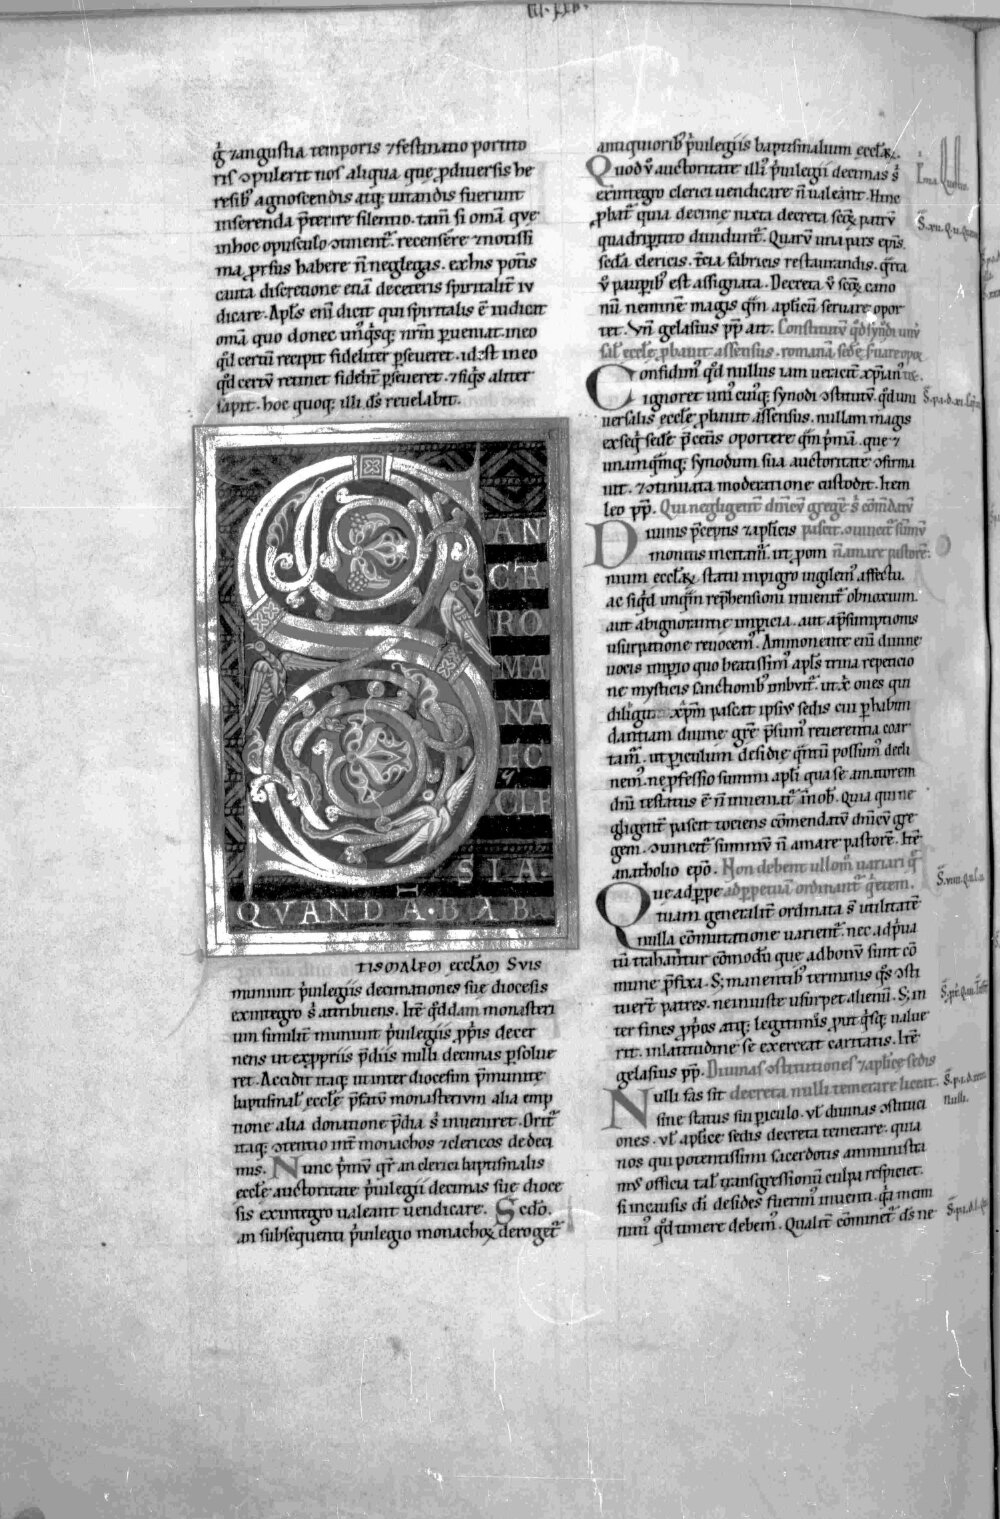 g̊ ⁊angustia temporis ⁊festinatio portito
ris ↄpulerit nos aliqua que ꝓdiuersis he
resib; agnoscendis atq; uitandis fuerunt
inserenda p̄terire silentio. tam̄ si om̄a que
inhoc opusculo ↄtinent᷑. recensere ⁊notissi
ma prsus habere n̄ neglegas. exhis potis
cauta discretione etiā deceteris spiritalit᷑ iu
dicare. Apl's eni dicit qui spiritalis ē iudicat
om̄a quo donec
qd̓ certū recipit fideliter ꝑseueret. id:st in eo
qd̓ certū retinet fidelit᷑ ꝑseueret. ⁊siq̓s aliter
sapit. hoc quoq; illi dſ reuelabit.
SAN
CTA
RO
MA
NA
EC
CLE
SIA.
QVANDĀ.BAB
TISMALEM ECCLĀM SVIS
muniuit p̓uilegiis decimationes sue diocesis
exintegro s̓ attribuens. Itē qd̓dam monasteri
um similit᷑ muniuit p̓uilegiis ꝓp̓is decer
nens ut exꝓpriis p̄diis nulli decimas ꝑsolue
ret. Accidit itaq; ut inter diocesim p̄munite
baptismal' eccl'e p̄fatū monasterium alia emp
tione alia donatione p̄dia s̓ inueniret. Orit᷑
itaq; ↄtentio int᷑ monachos ⁊clericos dedeci
mis. Nunc p̓mū qr̓ an clerici baptismalis
eccl'e auctoritate p̓uilegii decimas sue dioce
sis exintegro ualeant uendicare. Sc̄do.
an subsequenti p̓uilegio monachoꝝ deroget᷑
antiquiorib; p̓uilegiis baptismalium eccl'aꝝ.
Quod ů auctoritate illi᷒ p̓uilegii decimas s̓
exintegro clerici uendicare n̄ ualeant. hinc
ꝓbat᷑ quia decime iuxta decreta sc̄oꝝ patrū
quadripartito diuidunt᷑. Quarū una pars ep̄is.
sc̄da clericis. t̄cia fabricis restaurandis. q̓rta
ů pauꝑib; est assignata. Decreta ů sc̄oꝝ cano
nū neminē magis qm̄ aplicū seruare opor
tet. Vn̄ gelasius pp̄ ait. Constitutū qd̓ synodi uni
sal' eccl'e ꝓbauit assensus. romanā sedē s̓uare opor
Confidim᷒ qd̓ nullus iam ueracit᷑ xp̄ian᷒
ignoret uni᷒ cuiq; synodi ↄstitutū. qd̓ uni
uersalis eccl'e ꝓbauit assensus. nullam magis
exseq̓ sedē p̄ ceteris oportere qm̄ p̓mā. que ⁊
unamqmq; synodum sua auctoritate ↄfirma
uit. ⁊ↄtinuata moderatione custodit. Item
leo pp̄. Qui negligent᷑ dn̄icū gregē s̓ com̄datū
Diuinis p̄ceptis ⁊aplicis pascit. ↄuincit᷑ summū
monitis incitam̓. ut ꝓ om n̄ amare pastorē.
nium eccl'aꝝ statu inpigro uigilem᷒ affectu.
ac siqd̓ unq̄m rep̄hensioni inuenit᷑ obnoxium.
aut abignorantie impicia. aut ap̄sumptionis
usurpatione reuocem᷒. Ammonente eni diuine
uocis imꝑio quo beatissim᷒ apl's trina repeticio
ne mysticis sanctionib; imbuit᷑. ut x̓ oues qui
diligit xp̄m pascat ipsi᷒ sedis cui p̄habun
dantiam diuine gr̄e p̄sum᷒ reuerentia coar
tam̓. ut ꝑiculum desidie q̓ntū possum᷒ decli
nem᷒. ne ꝓfessio summi apl'i qua se amatorem
dn̄i testatus ē n̄ inueniat᷑ in nob̓. Quia qui ne
gligent᷑ pascit tociens com̄endatū dn̄icū gre
gem. ↄuincit᷑ summū n̄ amare pastorē. Itē
anatholio ep̄o. Non debent ullom̓ uariari q̓
Que ad ꝑpe adꝑpetuā ordinant᷑ q̓etem.
tuam generalit᷑ ordinata s̄ utilitatē
nulla com̄utatione uarient᷑. nec ad p̓ua
tū trahantur com̄odū que adbonū sunt cō
mune p̄fixa. S; manentib; terminis q̓s ↄsti
tuer̄t patres. ne iniuste usurpet alienū. S; in
ter fines ꝓp̓os atq; legitimis ꝓut q̓sq; ualue
rit. inlatitudine se exerceat caritatis. Itē
gelasius pp̄. Diuinas ↄstitutiones ⁊aplice sedis
Nulli fas sit decreta nulli temerare liceat.
sine status sui ꝑiculo. ul' diuinas ↄstituci
ones. ul' aplice sedis decreta temerare. quia
nos qui potentissimi sacerdotis amministra
m᷒ officia tal' transgressionū culpa respiciet.
si incausis di desides fuerim᷒ inuenti. q̓a memi
nim᷒ qd̓ timere debem᷒. Qualit᷑ com̄inet᷑ dſ ne